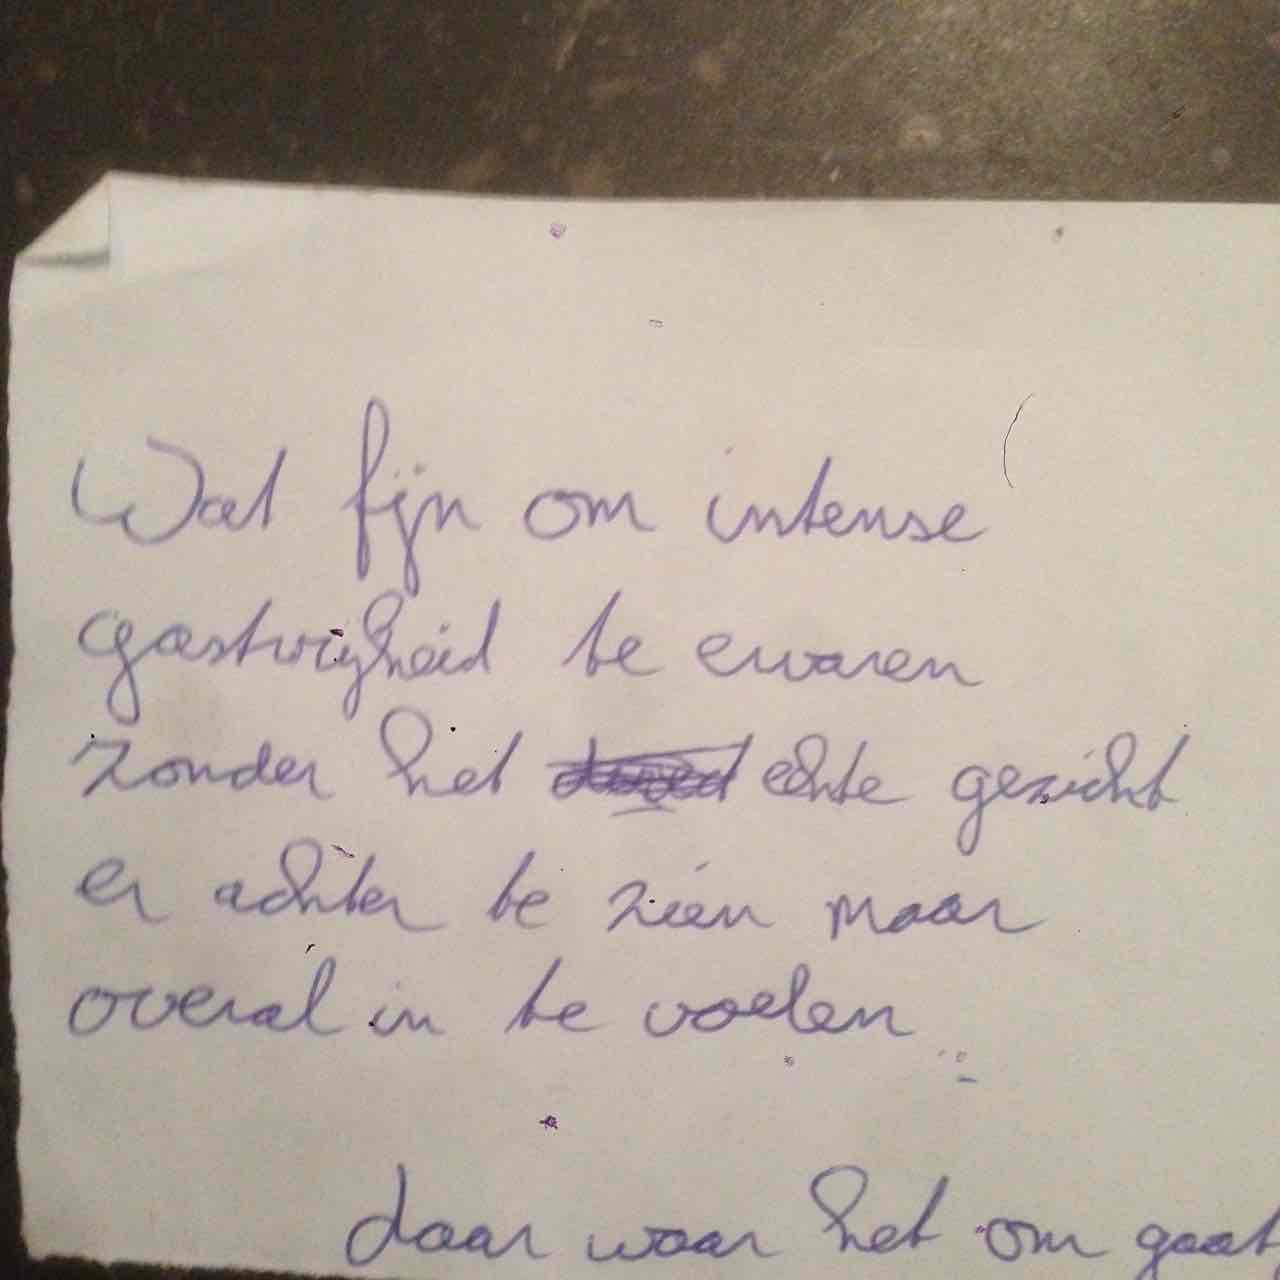 Wat fijn om intense
gastvrijheid te ervaren
zonder het echte gezicht
er achter te zien maar
overal in te voelen
daar waar het om gaat